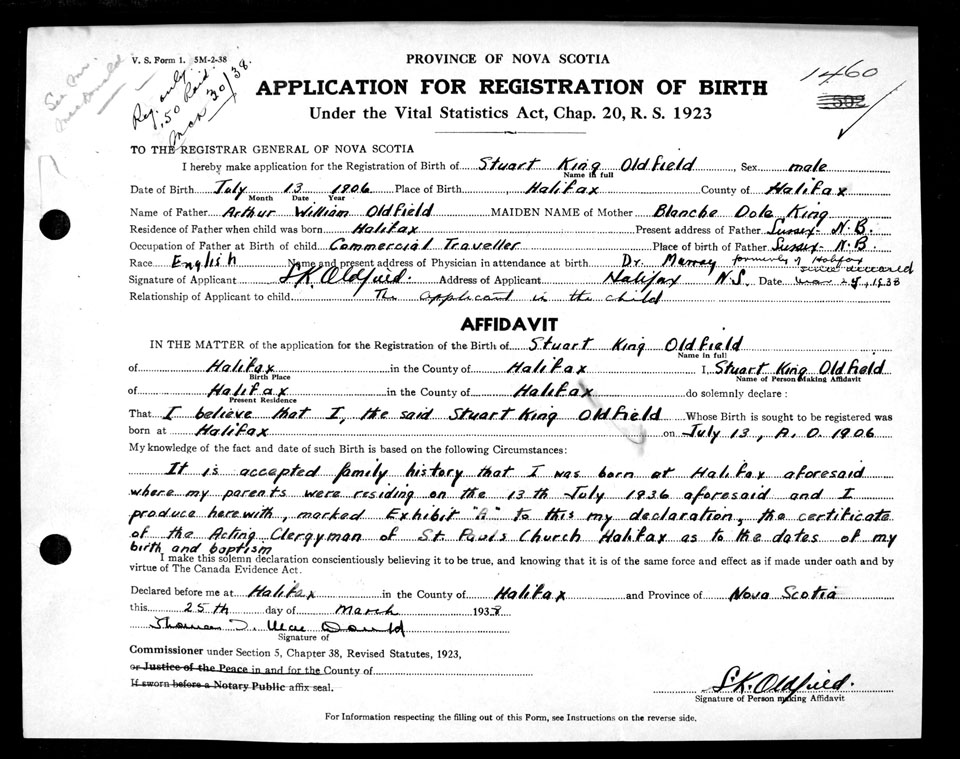 See Mr.
MacDonald
V. S. Form 1. 5M-2-38
Reg. only
.50 Paid.
Mar 30/38.
PROVINCE OF NOVA SCOTIA
APPLICATION FOR REGISTRATION OF BIRTH
Under the Vital Statistics Act, Chap. 20, R. S. 1923
1460
502
TO THE REGISTRAR GENERAL OF NOVA SCOTIA
I hereby make application for the Registration of Birth of Stuart King Oldfield, Sex male
Name in full
Date of Birth July 13 1906 Place of Birth Halifax County of Halifax
Month Date Year
Name of Father Arthur William Oldfield MAIDEN NAME of Mother Blanche Dole King
Residence of Father when child was born Halifax Present address of Father Sussex- N.B.
Occupation of Father at Birth of child Commercial Traveller Place of birth of Father Sussex- N.B.
Race English Name and present address of Physician in attendance at birth Dr. Murray formerly of Halifax
since deceased
Signature of Applicant S.K. Oldfield. Address of Applicant Halifax N.S. Date Mar 25, 1938
Relationship of Applicant to child The applicant is the child
AFFIDAVIT
IN THE MATTER of the application for the Registration of the Birth of Stuart King Oldfield
Name in full
of Halifax in the County of Halifax I, Stuart King Oldfield
Birth Place Name of Person Making Affidavit
of Halifax in the County of Halifax do solemnly declare :
Present Residence
That I believe that I, the said Stuart King Oldfield Whose Birth is sought to be registered was
born at Halifax on July 13, A.D. 1906
My knowledge of the fact and date of such Birth is based on the following Circumstances:
It is accepted family history that I was born at Halifax aforesaid
where my parents were residing on the 13th July 1936 aforesaid and I
produce herewith, marked Exhibit "A" to this my declaration, the certificate
of the Acting Clergyman of St. Pauls Church Halifax as to the dates of my
birth and baptism
I make this solemn declaration conscientiously believing it to be true, and knowing that it is of the same force and effect as if made under oath and by
virtue of The Canada Evidence Act.
Declared before me at Halifax in the County of Halifax and Province of Nova Scotia
this 25th day of March 1938
Thomas J. MacDonald
Signature of
Commissioner under Section 5, Chapter 38, Revised Statutes, 1923,
or Justice of the Peace in and for the County of
If sworn before a Notary Public affix seal.
S.K. Oldfield.
Signature of Person making Affidavit
For Information respecting the filling out of this Form, see Instructions on the reverse side.